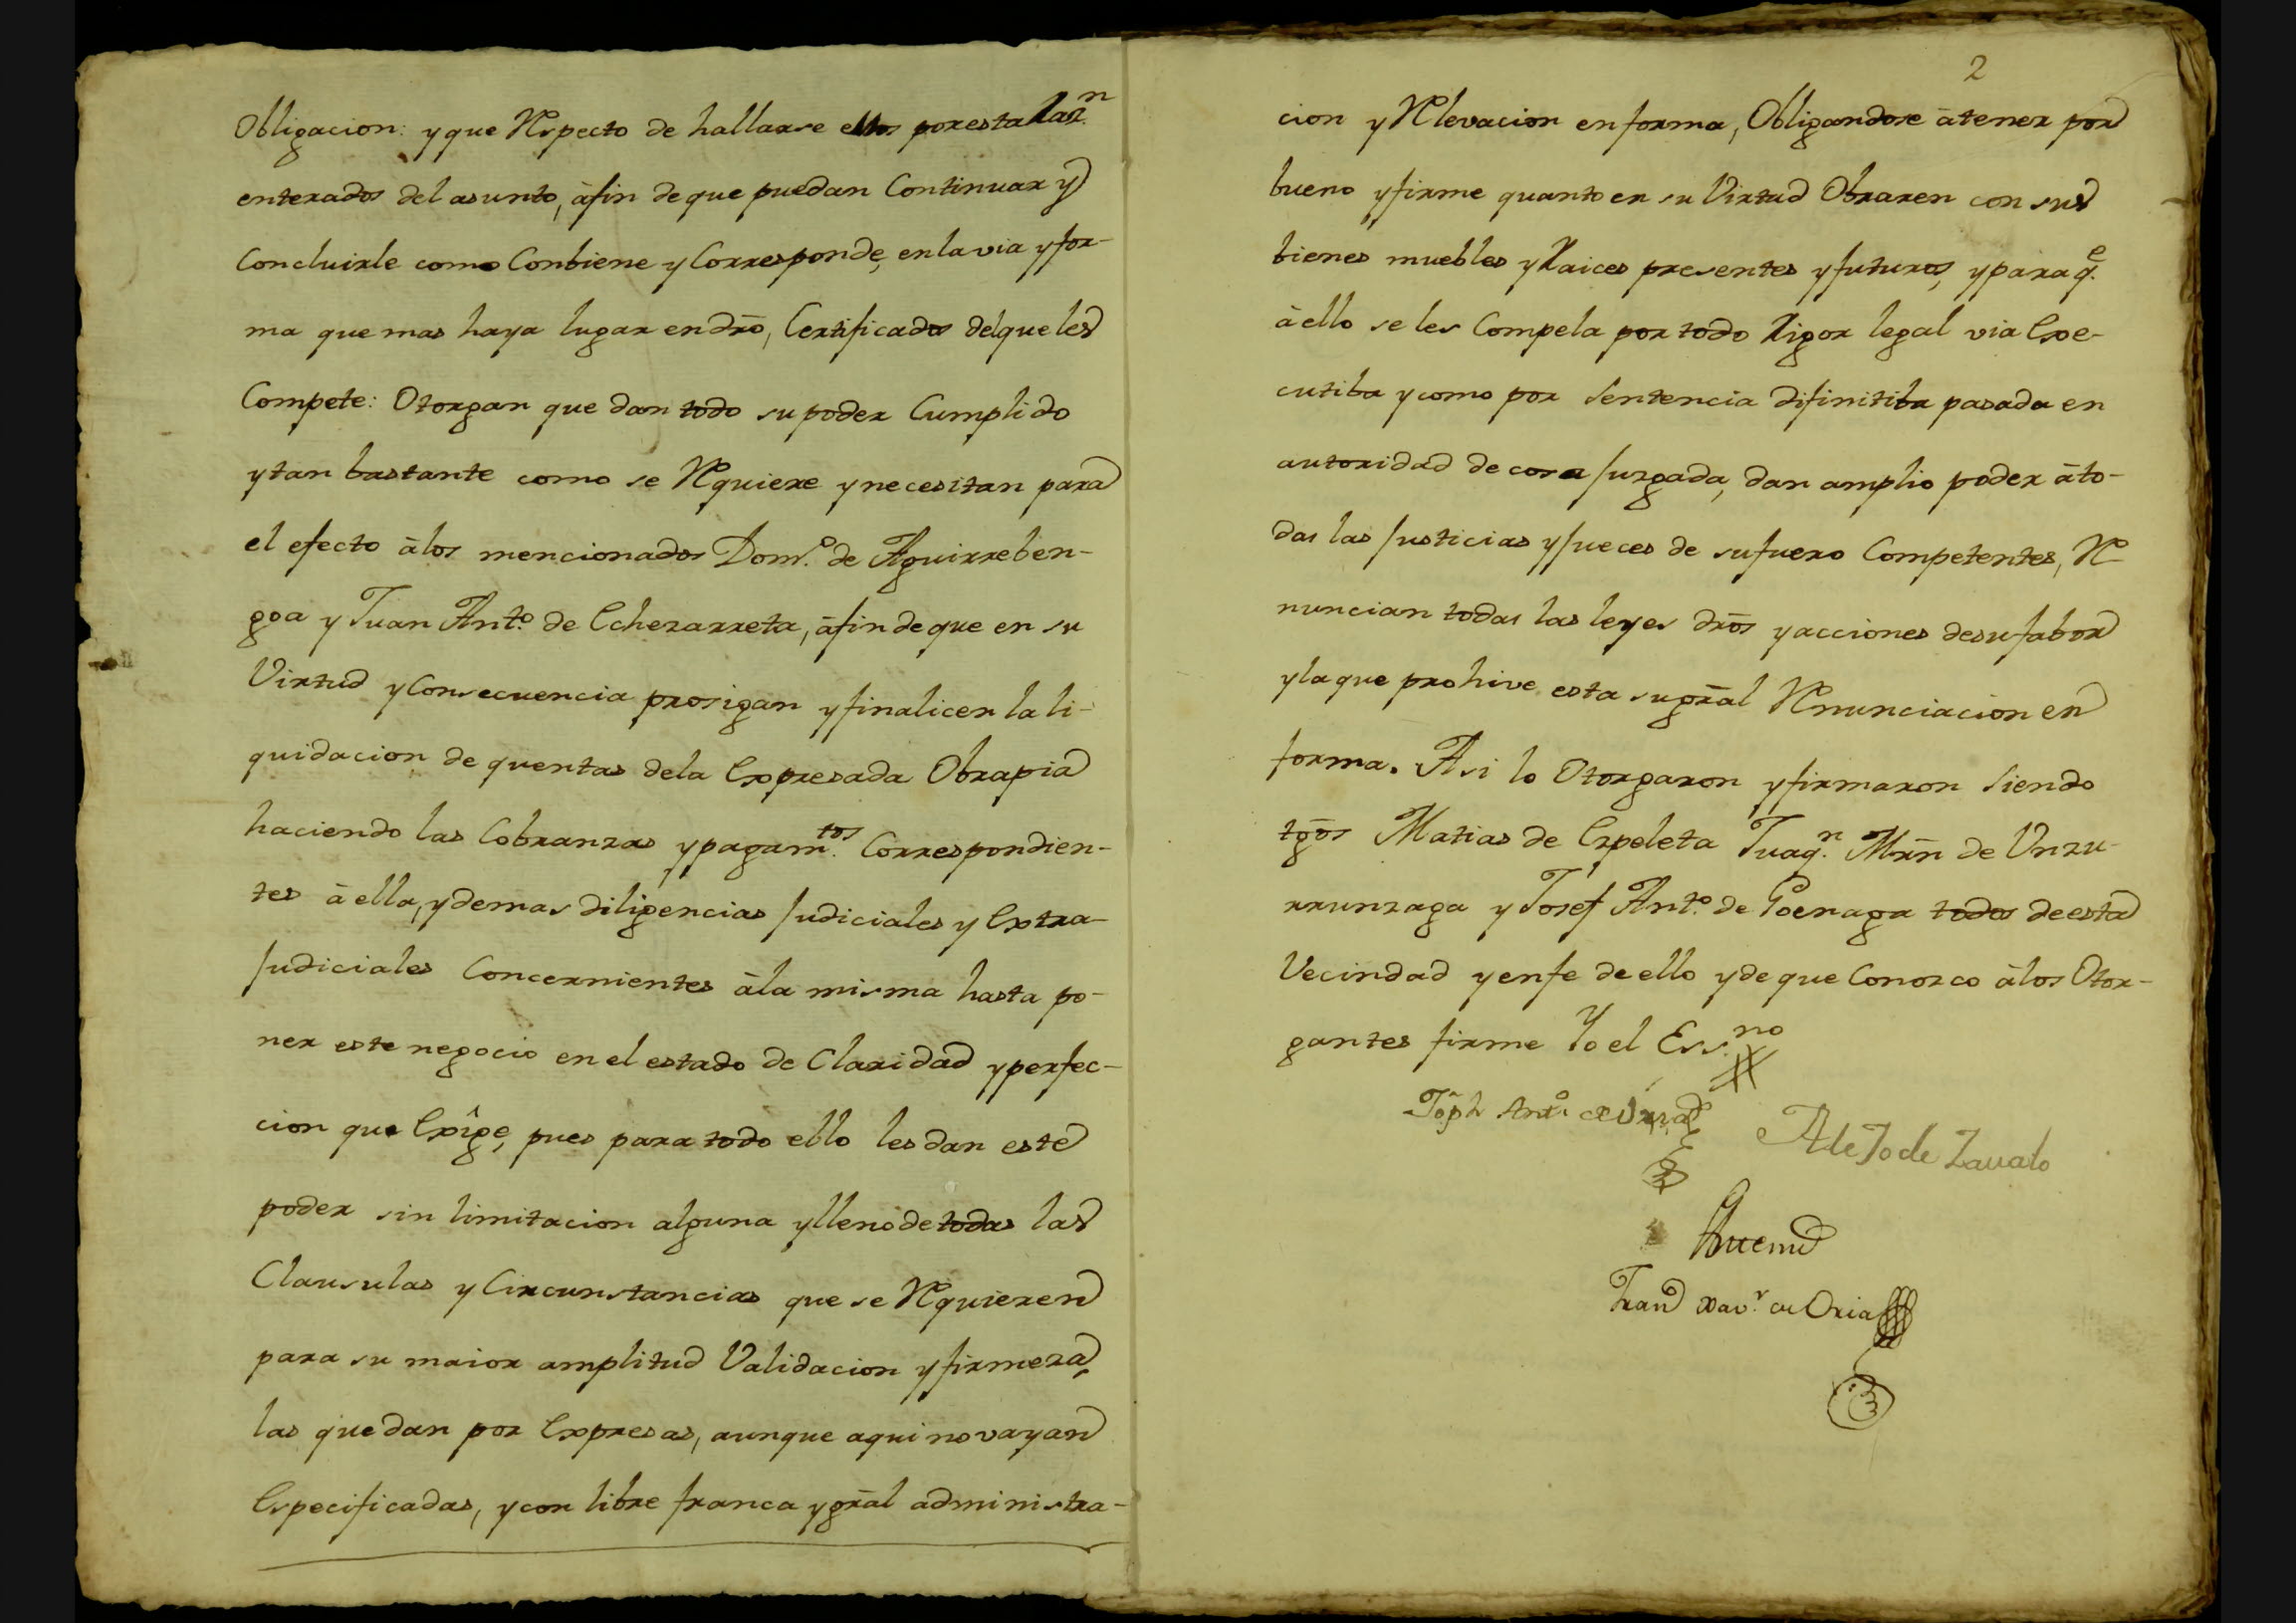 Obligacion: y que Respecto de hallarse ellos por esta Raz.n
enterados del asunto, àfin de que puedan Continuar y
Concluirle como Conbiene y Corresponde, en la via y for-
ma que mas haya lugar en dro, Certificados del que les
Compete: Otorgan que dan todo su poder Cumplido
y tan bastante como se Requiere y necesitan para
el efecto àlos mencionados Dom.o de Aguirreben-
goa y Juan Ant.o de Echezarreta, àfin de que en su
Virtud y Consecuencia prosigan y finalicen la li-
quidacion de quentas dela Expresada Obrapia
haciendo las Cobranzas y pagam.tos Correspondien-
tes à ella, y demas diligencias Judiciales y Extra-
Judiciales Concernientes àla misma hasta po-
ner este negocio en el estado de Claridad y perfec-
cion que Exîge, pues para todo ello les dan este
poder sin limitacion alguna y lleno de todas las
Clausulas y Circunstancias que se Requieren
para su maior amplitud Validacion y firmeza,
las que dan por Expresas, aunque aqui no vayan
Especificadas, y con libre franca y gral administra-
2
cion y Relevacion en forma, Obligandose à tener por
bueno y firme quanto en su Virtud Obraren con sus
bienes muebles y Raices presentes y futuros, y para q.e
à ello se les Compela por todo Rigor legal via Exe-
cutiba y como por Sentencia difinitiba pasada en
autoridad de cosa Juzgada, dan amplio poder à to-
das las Justicias y Jueces de su fuero Competentes, Re
nuncian todas las leyes dros y acciones de su fabor
y la que prohive esta su gral Renunciacion en
forma. Asi lo Otorgaron y firmaron Siendo
tgos Matias de Espeleta Juaq.n Mrn de Unzu-
rrunzaga y Josef Ant.o de Goenaga todos de esta
Vecindad y en fe de ello y de que Conozco à los Otor-
gantes firme Yo el Ess.no
Joph Ant.o de
Alejo de Zauala
Antemi
Fran Xav.r de Oria